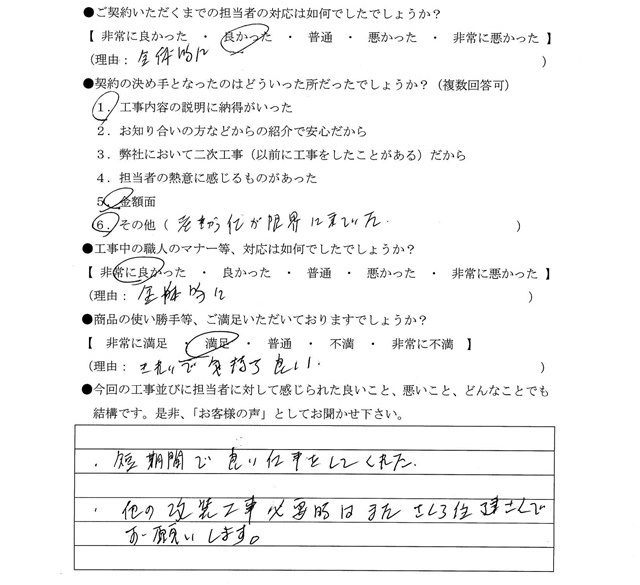 ●ご契約いただくまでの担当者の対応は如何でしたでしょうか？
【 非常に良かった ・ 良かった ・ 普通 ・ 悪かった ・ 非常に悪かった 】
(理由： 全体的に )
●契約の決め手となったのはどういった所だったでしょうか？（複数回答可）
1．工事内容の説明に納得がいった
2．お知り合いの方などからの紹介で安心だから
3．弊社において二次工事（以前に工事をしたことがある）だから
4．担当者の熱意に感じるものがあった
5．金額面
6．その他（ が限界に来ていた. ）
●工事中の職人のマナー等、対応は如何でしたでしょうか？
【 非常に良かった ・ 良かった ・ 普通 ・ 悪かった ・ 非常に悪かった 】
(理由： 全体的に )
●商品の使い勝手等、ご満足いただいておりますでしょうか？
【 非常に満足 ・ 満足 ・ 普通 ・ 不満 ・ 非常に不満 】
(理由： きれいで気持ち良い. )
●今回の工事並びに担当者に対して感じられた良いこと、悪いこと、どんなことでも
結構です。是非、「お客様の声」としてお聞かせ下さい。
・短期間で良い仕事をしてくれた.
・他の改装工事必要時はまた さんで
お願いします。